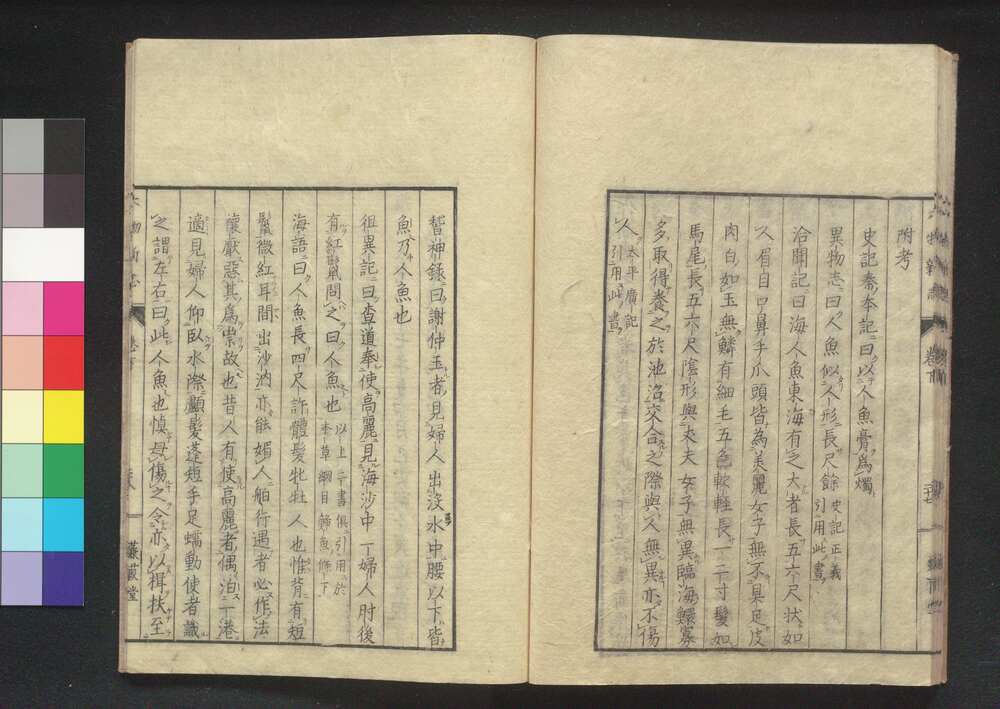 附考
史記秦本記曰以人魚膏爲燭
異物志曰人魚似人形長尺餘 史記正義引用此書
洽聞記曰海人魚東海有之大者長五六尺状如
人眉目口鼻手爪頭皆為美麗女子無不具足皮
肉白如玉無鱗有細毛五色軟軽長一二寸髮如
馬尾長五六尺陰形與丈夫女子無異臨海鰥寡
多取得養之於池沼交合之際與人無異亦不傷
人 太平廣記引用此書
稽神録曰謝仲玉者見婦人出没水中腰以下皆
魚乃人魚也
徂異記曰査道奉使高麗見海沙中一婦人肘後
有紅鬣問之曰人魚也 以上二書俱引用於本草綱目䱱魚條下
海語曰人魚長四尺許體髮牝牡人也惟背有短
鬣微紅耳間出沙汭亦能媚人舶行遇者必作法
禳厭惡其為祟故也昔人有使高麗者偶泊一港
適見婦人仰臥水際顱髮蓬短手足蠕動使者識
之謂左右曰此人魚也慎毋傷之令亦以楫扶至
六物新志 卷下
二十七
蒹葭堂